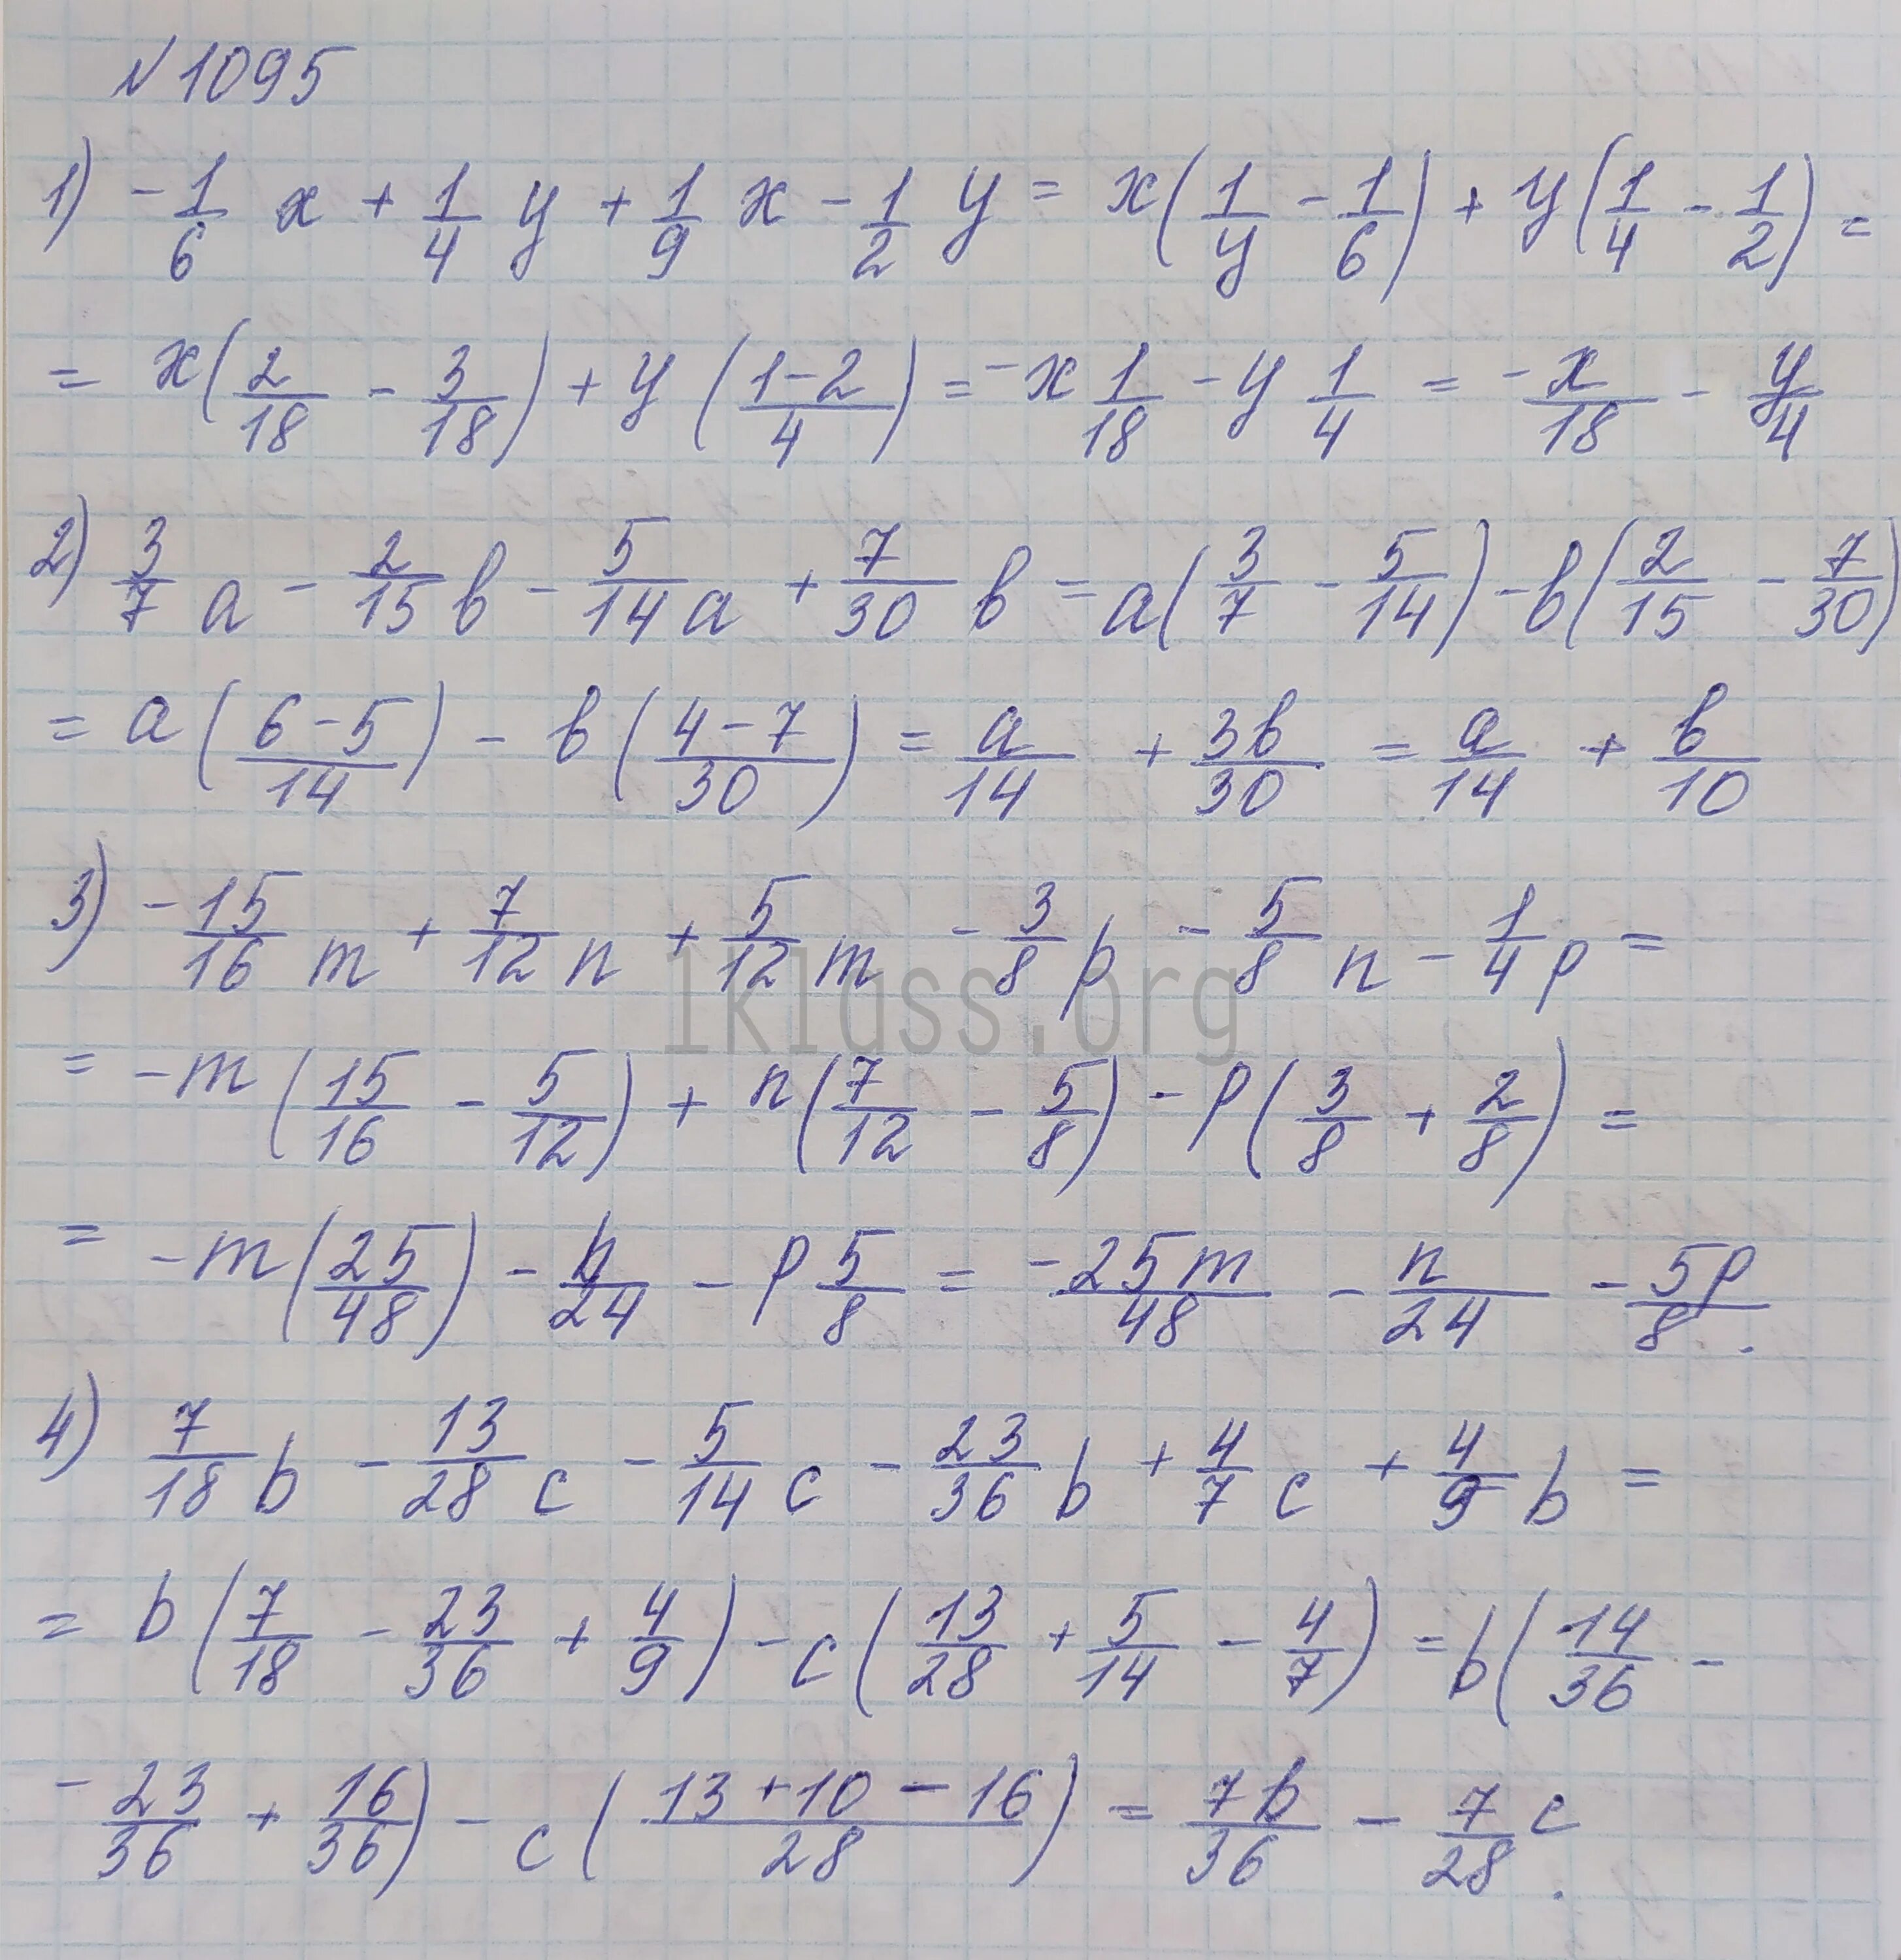 №1095
1) -1/6 x + 1/4 y + 1/9 x - 1/2 y = x(1/y - 1/6) + y(1/4 - 1/2) =
= x(2/18 - 3/18) + y((1-2)/4) = -x 1/18 - y 1/4 = -x/18 - y/4
2) 3/7 a - 2/15 b - 5/14 a + 7/30 b = a(3/7 - 5/14) - b(2/15 - 7/30)
= a((6-5)/14) - b((4-7)/30) = a/14 + 3b/30 = a/14 + b/10
3) -15/16 m + 7/12 n + 5/12 m - 3/8 p - 5/8 n - 1/4 p =
1klass.org
= -m(15/16 - 5/12) + n(7/12 - 5/8) - p(3/8 + 2/8) =
= -m(25/48) - n/24 - p 5/8 = -25m/48 - n/24 - 5p/8.
4) 7/18 b - 13/28 c - 5/14 c - 23/36 b + 4/7 c + 4/9 b =
= b(7/18 - 23/36 + 4/9) - c(13/28 + 5/14 - 4/7) = b(14/36 -
- 23/36 + 16/36) - c((13+10-16)/28) = 7b/36 - 7/28 c.